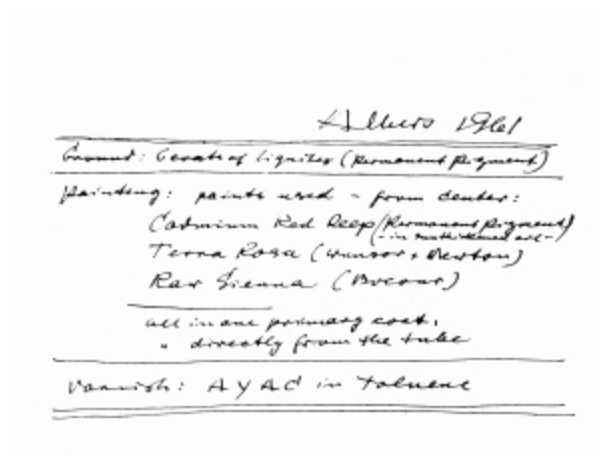 Albers 1961
Ground: 6 coats of Liquitex (Permanent Pigment)
Painting: paints used - from center:
Cadmium Red Deep (Permanent Pigment)
- in
Terra Rosa (Winsor + Newton)
Raw Sienna (Bocour)
all in one primary coat,
" directly from the tube
Varnish: AYAC in Toluene